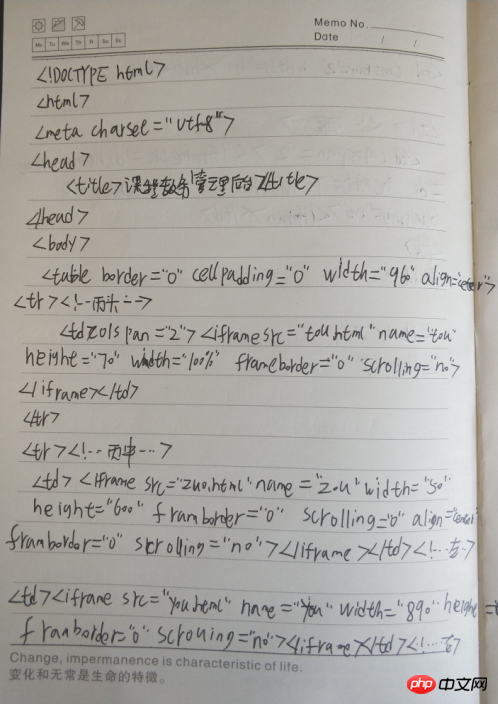 Memo No.
Mo Tu We Th Fr Sa Su
Date / /
<!DOCTYPE html>
<html>
<meta charset="utf-8">
<head>
<title>课程教务管理后台</title>
</head>
<body>
<table border="0" cellpadding="0" width="960" align="ceter">
<tr><!--页头-->
<td colspan="2"><iframe src="tou.html" name="tou"
height="70" width="100%" frameborder="0" scrolling="no">
</iframe></td>
</tr>
<tr><!--页中-->
<td><iframe src="zuo.html" name="zou" width="50"
height="600" framborder="0" scrolling="0" align="center"
framborder="0" scrolling="no"></iframe></td><!--左-->
<td><iframe src="you.html" name="you" width="890" height=
framborder="0" scrouing="no"></iframe></td><!--右>
Change, impermanence is characteristic of life.
变化和无常是生命的特徵。
php 中文网